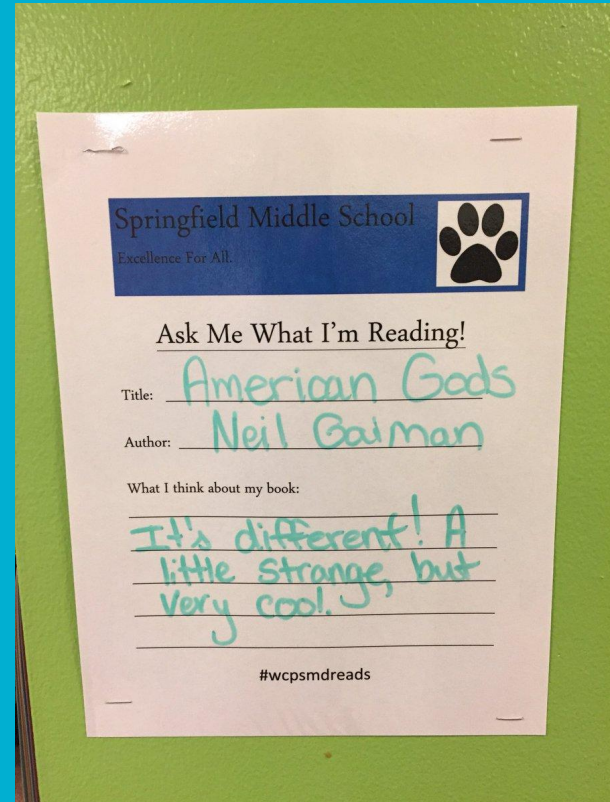 Springfield Middle School
Excellence For All.
Ask Me What I'm Reading!
Title: American Gods
Author: Neil Gaiman
What I think about my book:
It's different! A
little strange, but
very cool.
#wcpsmdreads